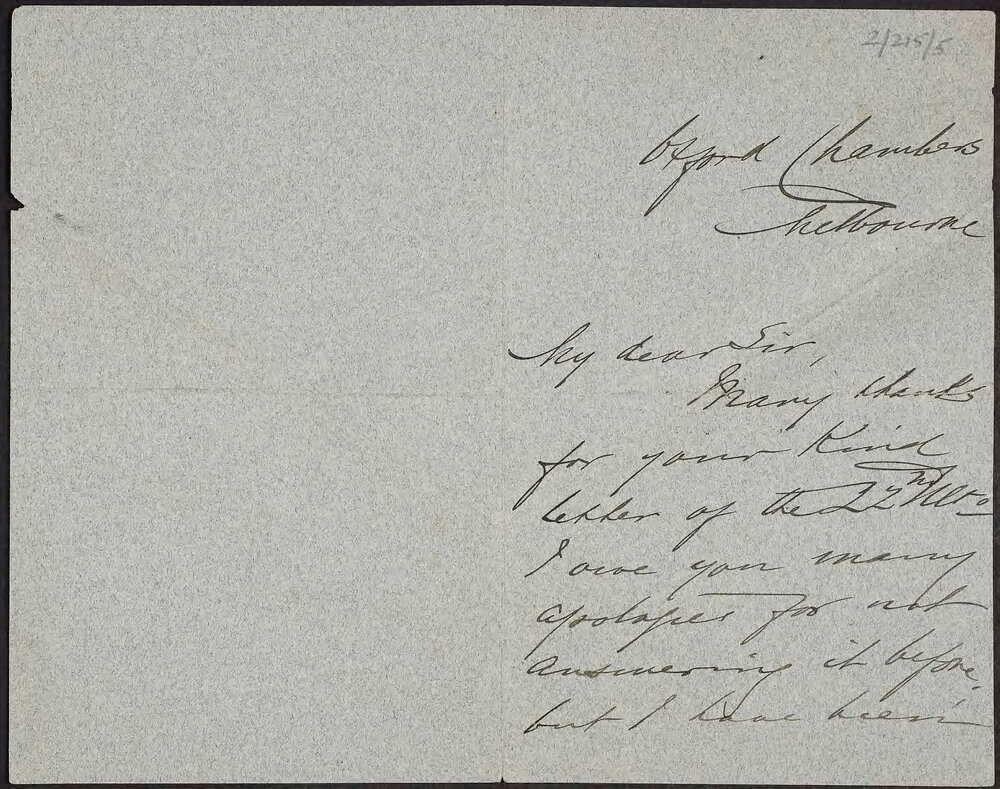 2/215/5
Oxford Chambers
Melbourne
My dear Sir,
Many thanks
for your Kind
letter of the 22nd Ulto
I owe you many
apologies for not
answering it before,
but I have been